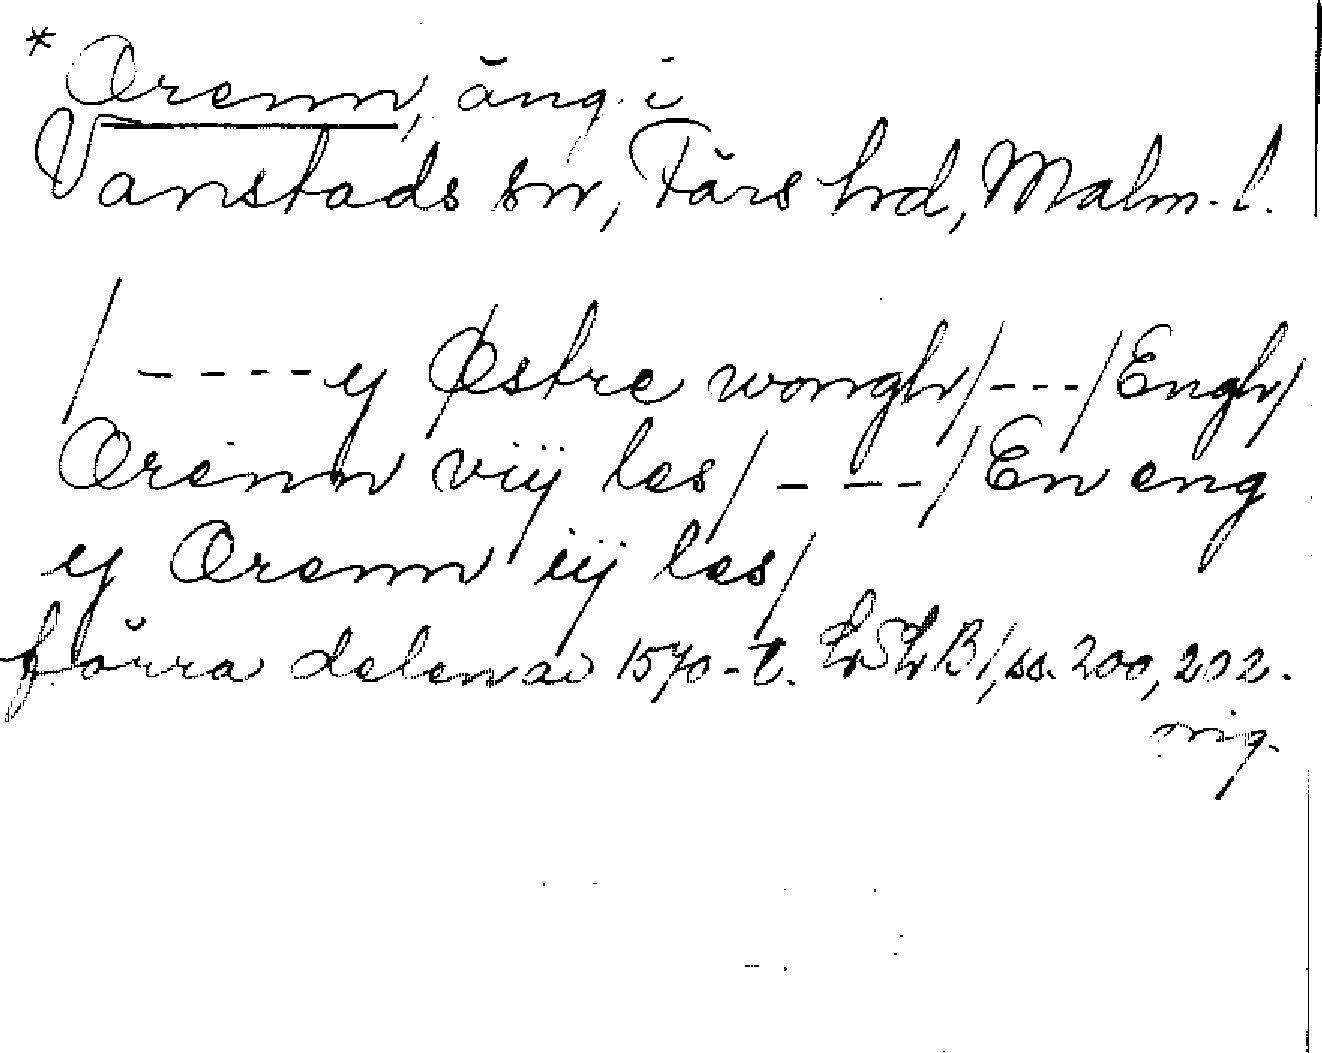 * Orenn, äng i
Vanstads sn, Färs hd, Malm. l.
/ - - - - y Østre wongh / - - - / Engh /
Orenn vijj les / - - - / En eng
y Orenn iij les /
förra delen av 1570-t. LSLB 1, ss. 200, 202.